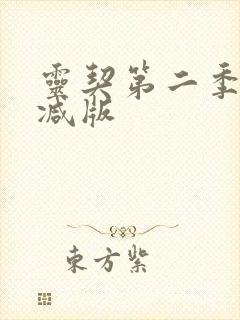 靈契第二季
减版
東方紫